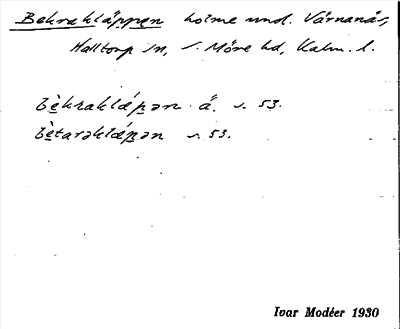 Bekrakläppen holme und. Värnanäs,
Halltorp sn, S. Möre hd, Kalm. l.
bèkraklápən å. s. 53.
bètaraklápən s. 53.
Ivar Modéer 1930